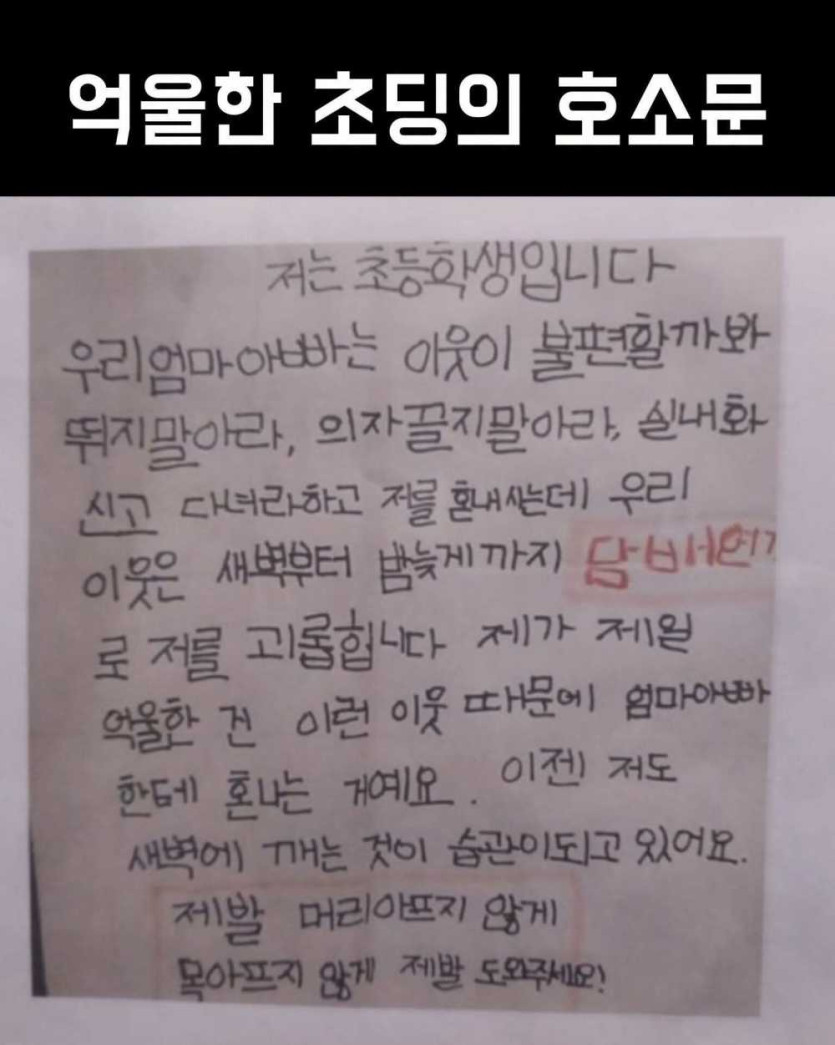 억울한 초딩의 호소문
저는 초등학생입니다
우리엄마아빠는 이웃이 불편할까봐
뛰지말아라, 의자끌지말아라, 실내화
신고 다녀라하고 저를 혼내시는데 우리
이웃은 새벽부터 밤늦게까지 담배연기
로 저를 괴롭힙니다 제가 제일
억울한 건 이런 이웃 때문에 엄마아빠
한테 혼나는 거예요. 이젠 저도
새벽에 깨는 것이 습관이되고 있어요.
제발 머리아프지 않게
목아프지 않게 제발 도와주세요!